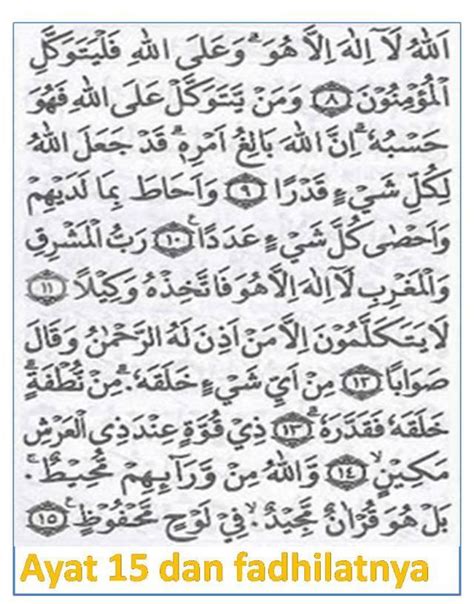 اَللّٰهُ لَآ اِلٰهَ اِلَّا هُوَ ۗ وَعَلَى اللّٰهِ فَلْيَتَوَكَّلِ
الْمُؤْمِنُوْنَ ﴿٨﴾ وَمَنْ يَّتَوَكَّلْ عَلَى اللّٰهِ فَهُوَ
حَسْبُهٗ ۗ اِنَّ اللّٰهَ بَالِغُ اَمْرِهٖ ۗ قَدْ جَعَلَ اللّٰهُ
لِكُلِّ شَيْءٍ قَدْرًا ﴿٩﴾ وَاَحَاطَ بِمَا لَدَيْهِمْ
وَاَحْصٰى كُلَّ شَيْءٍ عَدَدًا ﴿١٠﴾ رَبُّ الْمَشْرِقِ
وَالْمَغْرِبِ لَآ اِلٰهَ اِلَّا هُوَ فَاتَّخِذْهُ وَكِيْلًا ﴿١١﴾
لَا يَتَكَلَّمُوْنَ اِلَّا مَنْ اَذِنَ لَهُ الرَّحْمٰنُ وَقَالَ
صَوَابًا ﴿١٢﴾ مِنْ اَيِّ شَيْءٍ خَلَقَهٗ ۗ مِنْ نُّطْفَةٍ ۗ
خَلَقَهٗ فَقَدَّرَهٗ ۙ ﴿١٣﴾ ذِيْ قُوَّةٍ عِنْدَ ذِى الْعَرْشِ
مَكِيْنٍ ۙ ﴿١٤﴾ وَّاللّٰهُ مِنْ وَّرَآئِهِمْ مُّحِيْطٌ ۚ
بَلْ هُوَ قُرْاٰنٌ مَّجِيْدٌ ۙ فِيْ لَوْحٍ مَّحْفُوْظٍ ۚ ﴿١٥﴾
Ayat 15 dan fadhilatnya